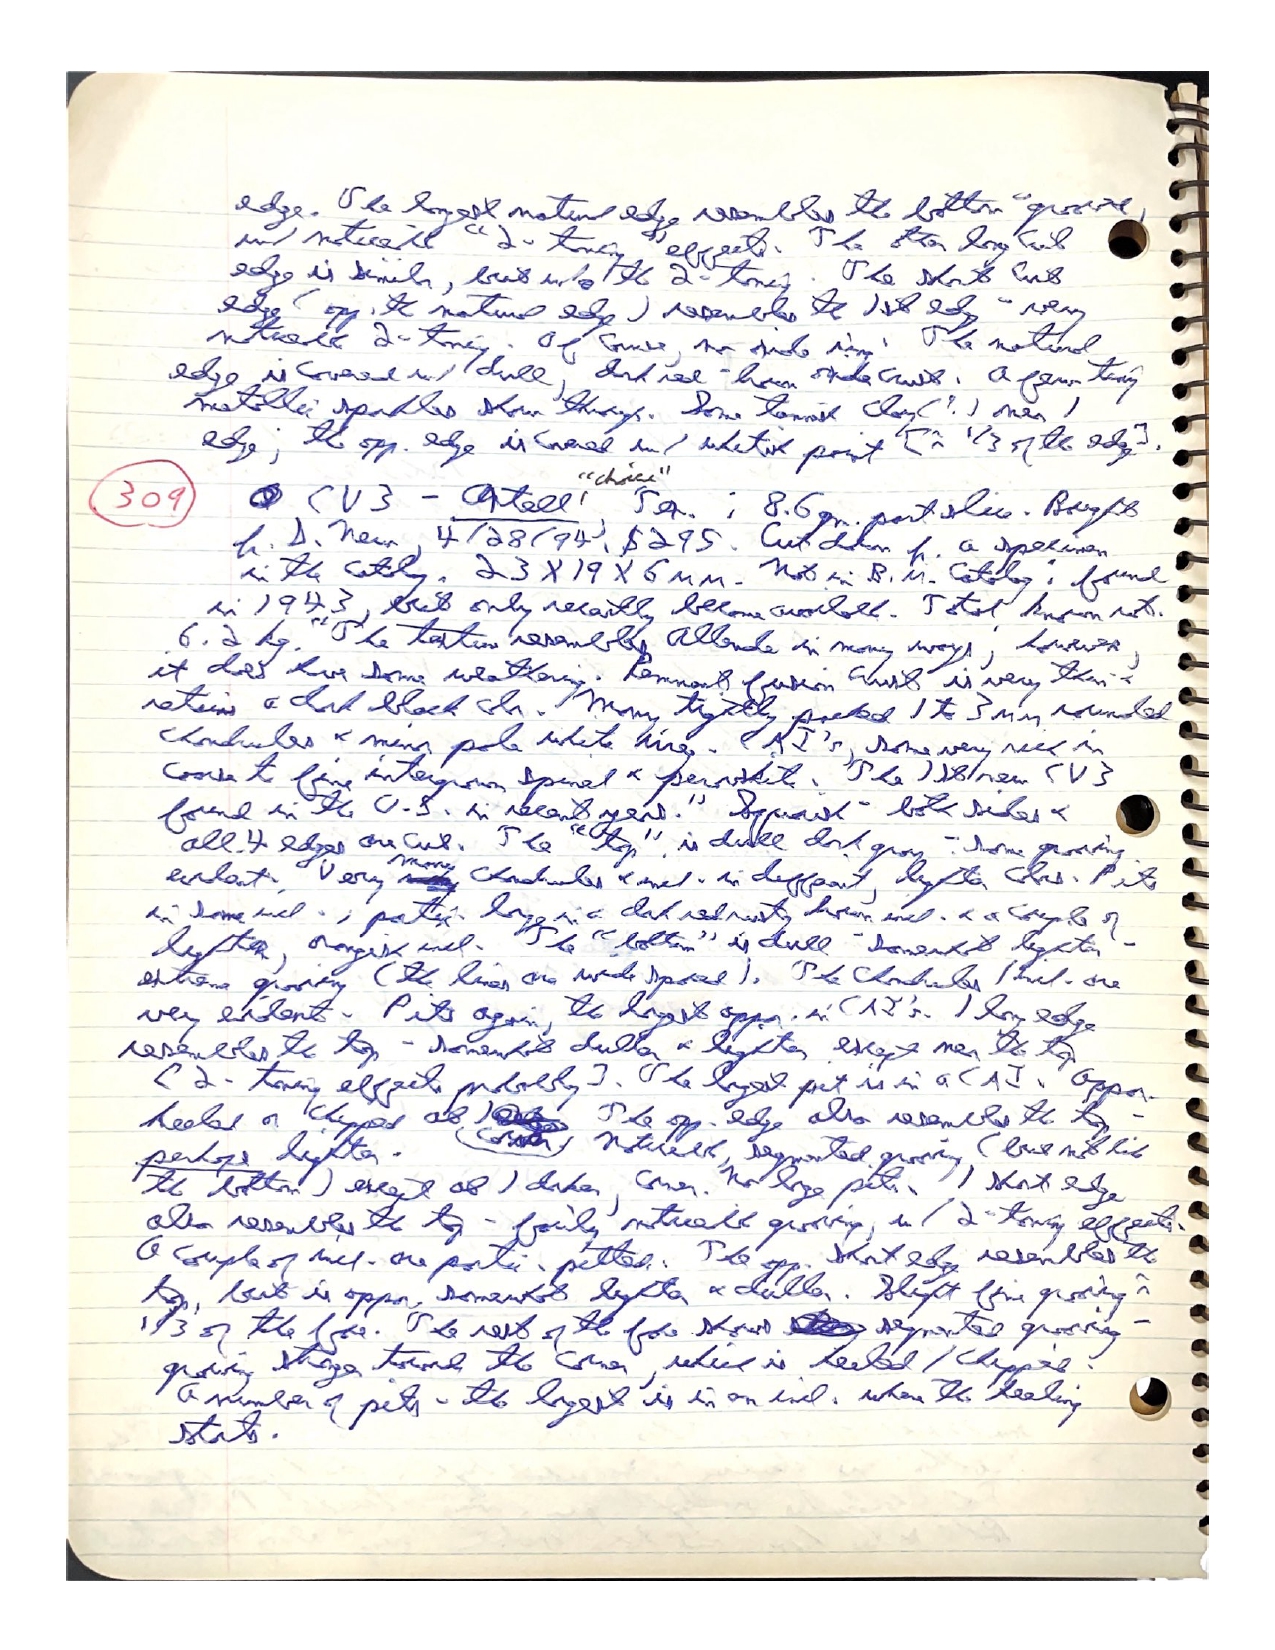 edge. The longest natural edge resembles the bottom - grooving,
w/ noticeable "2-toning" effects. The other long cut
edge is similar, but w/o the 2-toning. The short cut
edge (opp. the natural edge) resembles the 1st edge - very
noticeable 2-toning. Of course, no side ring. The natural
edge is covered w/ dull, dark red-brown side crust. A few tiny
metallic sparkles show through. Some tannish clay(?) near 1
edge; the opp. edge is covered w/ whitish paint [~ 1/3 of the edge].
309
"choice"
CV3 - Axtell, Tex.; 8.6 gm. part slice. Bought
fr. D. New, 4/28/94, $295. Cut down fr. a specimen
in the catalog. 23 X 19 X 6 mm. Not in B.M. Catalog; found
in 1943, but only recently become available. Total known wt.
6.2 kg. "The texture resembles Allende in many ways; however,
it does have some weathering. Remnant fusion crust is very thin &
retains a dark black color. Many tightly packed 1 to 3 mm rounded
chondrules & minor pale white irreg. CAI's, some very rich in
coarse to fine intergrown spinel & perovskite. The 1st new CV3
found in the U.S. in recent years." Squarish - both sides &
all 4 edges are cut. The "top" is dull dark gray - some grooving
evident. Very many chondrules & incl. in different, lighter colors. Pits
in some incl.; partic. large in a dark red rusty brown incl. & a couple of
lighter, orangish incl. The "bottom" is dull - somewhat lighter -
extreme grooving (the lines are widespread). The chondrules/incl. are
very evident. Pits again, the largest appar. in CAI's. 1 long edge
resembles the top - somewhat duller & lighter except near the top
[2-toning effects probably]. The largest pit is in a CAI. Appar.
healed or chipped at 1 corner. The opp. edge also resembles the top -
perhaps lighter. Noticeable, segmented grooving (but not like
the bottom) except at 1 darker, corner. No large pits. 1 short edge
also resembles the top - fairly noticeable grooving, w/ 2-toning effects.
A couple of incl. are partic. pitted. The opp. short edge resembles the
top, but is appar. somewhat lighter & duller. Slight fine grooving ~
1/3 of the face. The rest of the face shows segmented grooving -
growing stronger toward the corner, which is healed/chipped.
A number of pits - the largest is in an incl. where the healing
starts.